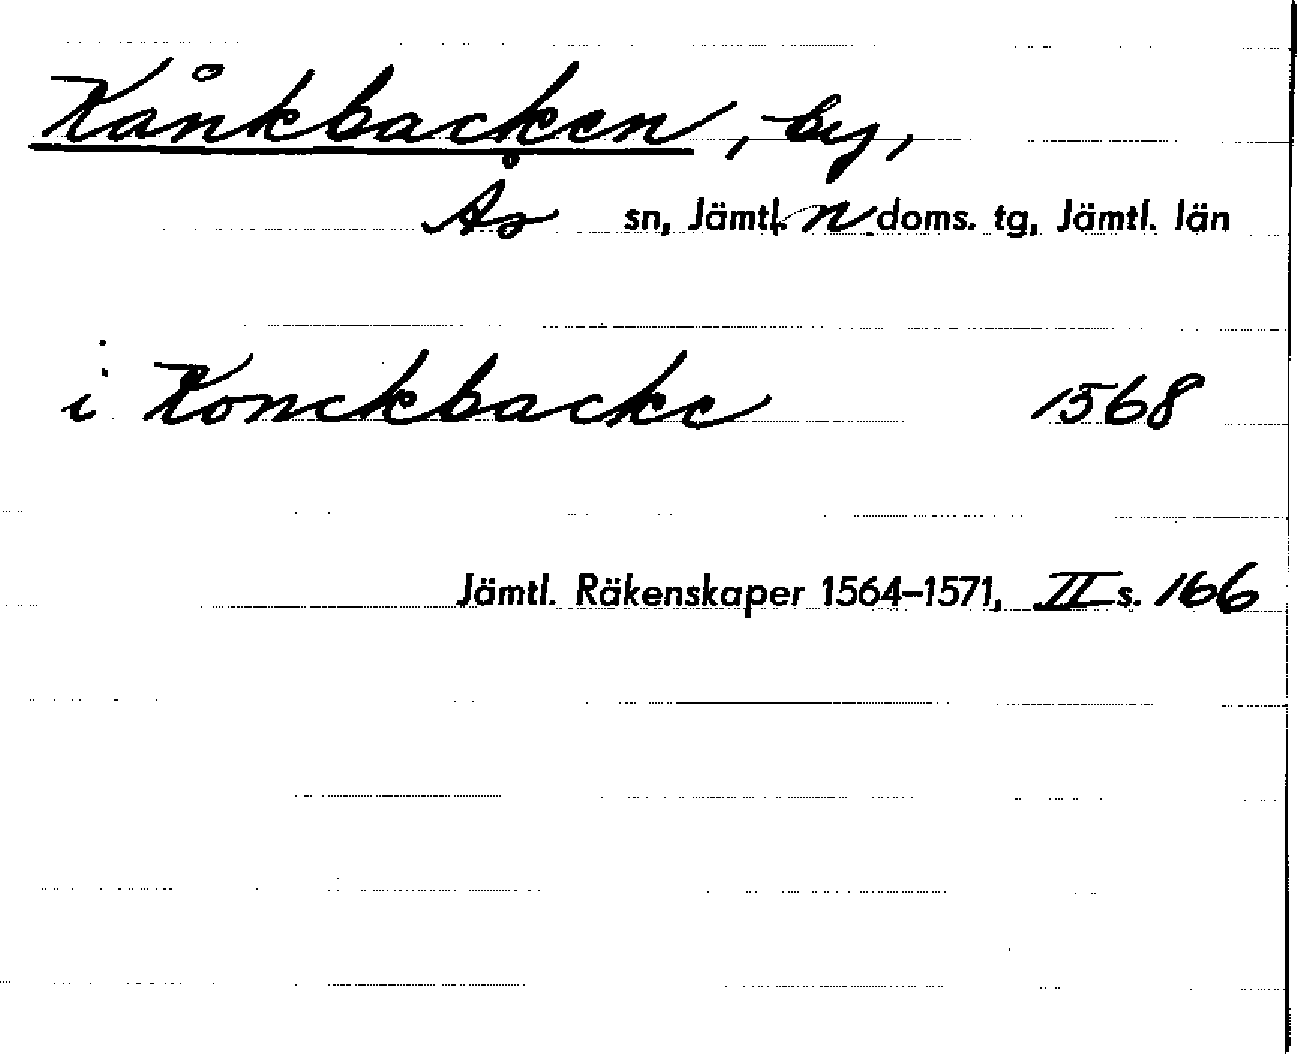 Kånkbacken, by,
Ås sn, Jämtl. n doms. tg, Jämtl. län
i Konckbacke 1568
Jämtl. Räkenskaper 1564–1571, II s. 166